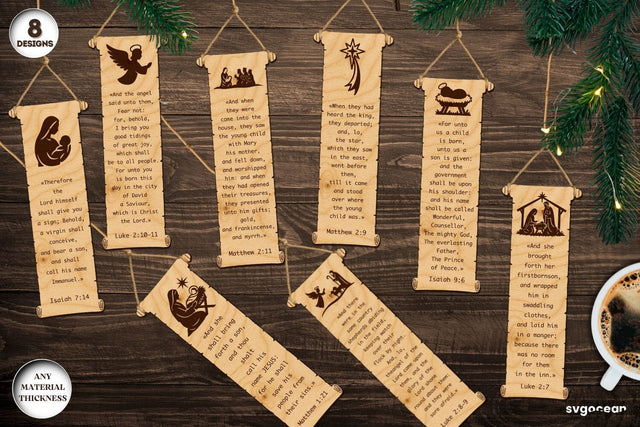 8
DESIGNS
«Therefore
the
Lord himself
shall give you
a sign; Behold,
a virgin shall
conceive,
and bear a son,
and shall
call his name
Immanuel.»
Isaiah 7:14
«And the angel
said unto them,
Fear not:
for, behold,
I bring you
good tidings
of great joy,
which shall
be to all people.
For unto you
is born this
day in the city
of David
a Saviour,
which is Christ
the lord.»
Luke 2:10-11
«And when
they were
come into the
house, they saw
the young child
with Mary
his mother,
and fell down,
and worshipped
him: and when
they had opened
their treasures,
they presented
unto him gifts;
gold,
and frankincense,
and myrrh.»
Matthew 2:11
«When they had
heard the king,
they departed;
and, lo,
the star,
which they saw
in the east,
went before
them,
till it came
and stood
over where
the young
child was.»
Matthew 2:9
«For unto
us a child
is born,
unto us a
son is given:
and the
government
shall be upon
his shoulder:
and his name
shall be called
Wonderful,
Counsellor,
The mighty God,
The everlasting
Father,
The Prince
of Peace.»
Isaiah 9:6
«And she
brought
forth her
firstbornson,
and wrapped
him in
swaddling
clothes,
and laid him
in a manger;
because there
was no room
for them
in the inn.»
Luke 2:7
«And she
shall bring
forth a son,
and thou
shalt
call his
name JESUS:
for he shall
save his
people from
their sins.»
Matthew 1:21
«And there
were in the
same country
shepherds abiding
in the field,
keeping watch
over their
flock by night.
And, lo, the
angel of the
Lord came upon
them, and the
glory of the
Lord shone
round about them:
and they were
sore afraid.»
Luke 2:8-9
ANY
MATERIAL
THICKNESS
svgocean